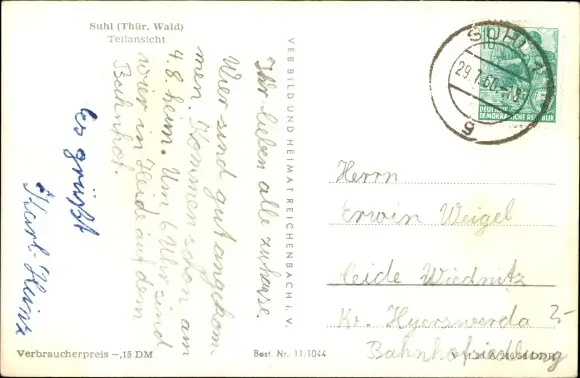 Suhl (Thür. Wald)
Teilansicht
Ihr lieben alle zuhause.
Wier sind gut angekom-
men. Kommen schon am
4.8 heim. Um 6 Uhr sind
wier in Heide auf dem
Bahnhof.
es grüßt
Karl-Heinz
VEB BILD UND HEIMAT REICHENBACH i. V.
SUHL 1
29.7.60
g
DEUTSCHE
DEMOKRATISCHE REPUBLIK
Herrn
Erwin Weigel
Heide Wiednitz
Kr. Hyerswerda
Bahnhofsiedlung
Verbraucherpreis -,15 DM
Best. Nr. 11/1044